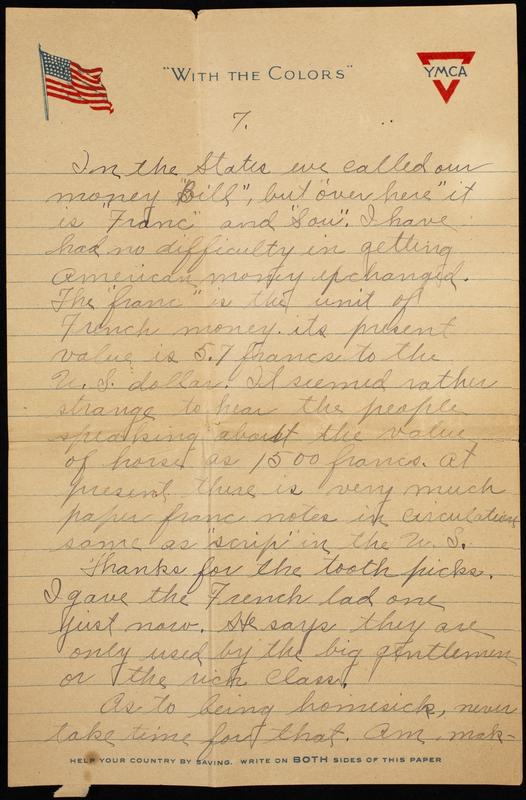 "WITH THE COLORS"
YMCA
7.
In the States we called our
money "Bill", but "over here" it
is "Franc" and "Sou". I have
had no difficulty in getting
American money exchanged.
The "franc" is the unit of
French money. its present
value is 5.7 francs to the
U. S. dollar. It seemed rather
strange to hear the people
speaking about the value
of horse as 1500 francs. At
present there is very much
paper franc notes in circulation
same as "scrip" in the U. S.
Thanks for the tooth picks.
I gave the French lad one
just now. He says they are
only used by the big gentlemen
or the rich class.
As to being homesick, never
take time for that. Am mak-
HELP YOUR COUNTRY BY SAVING. WRITE ON BOTH SIDES OF THIS PAPER